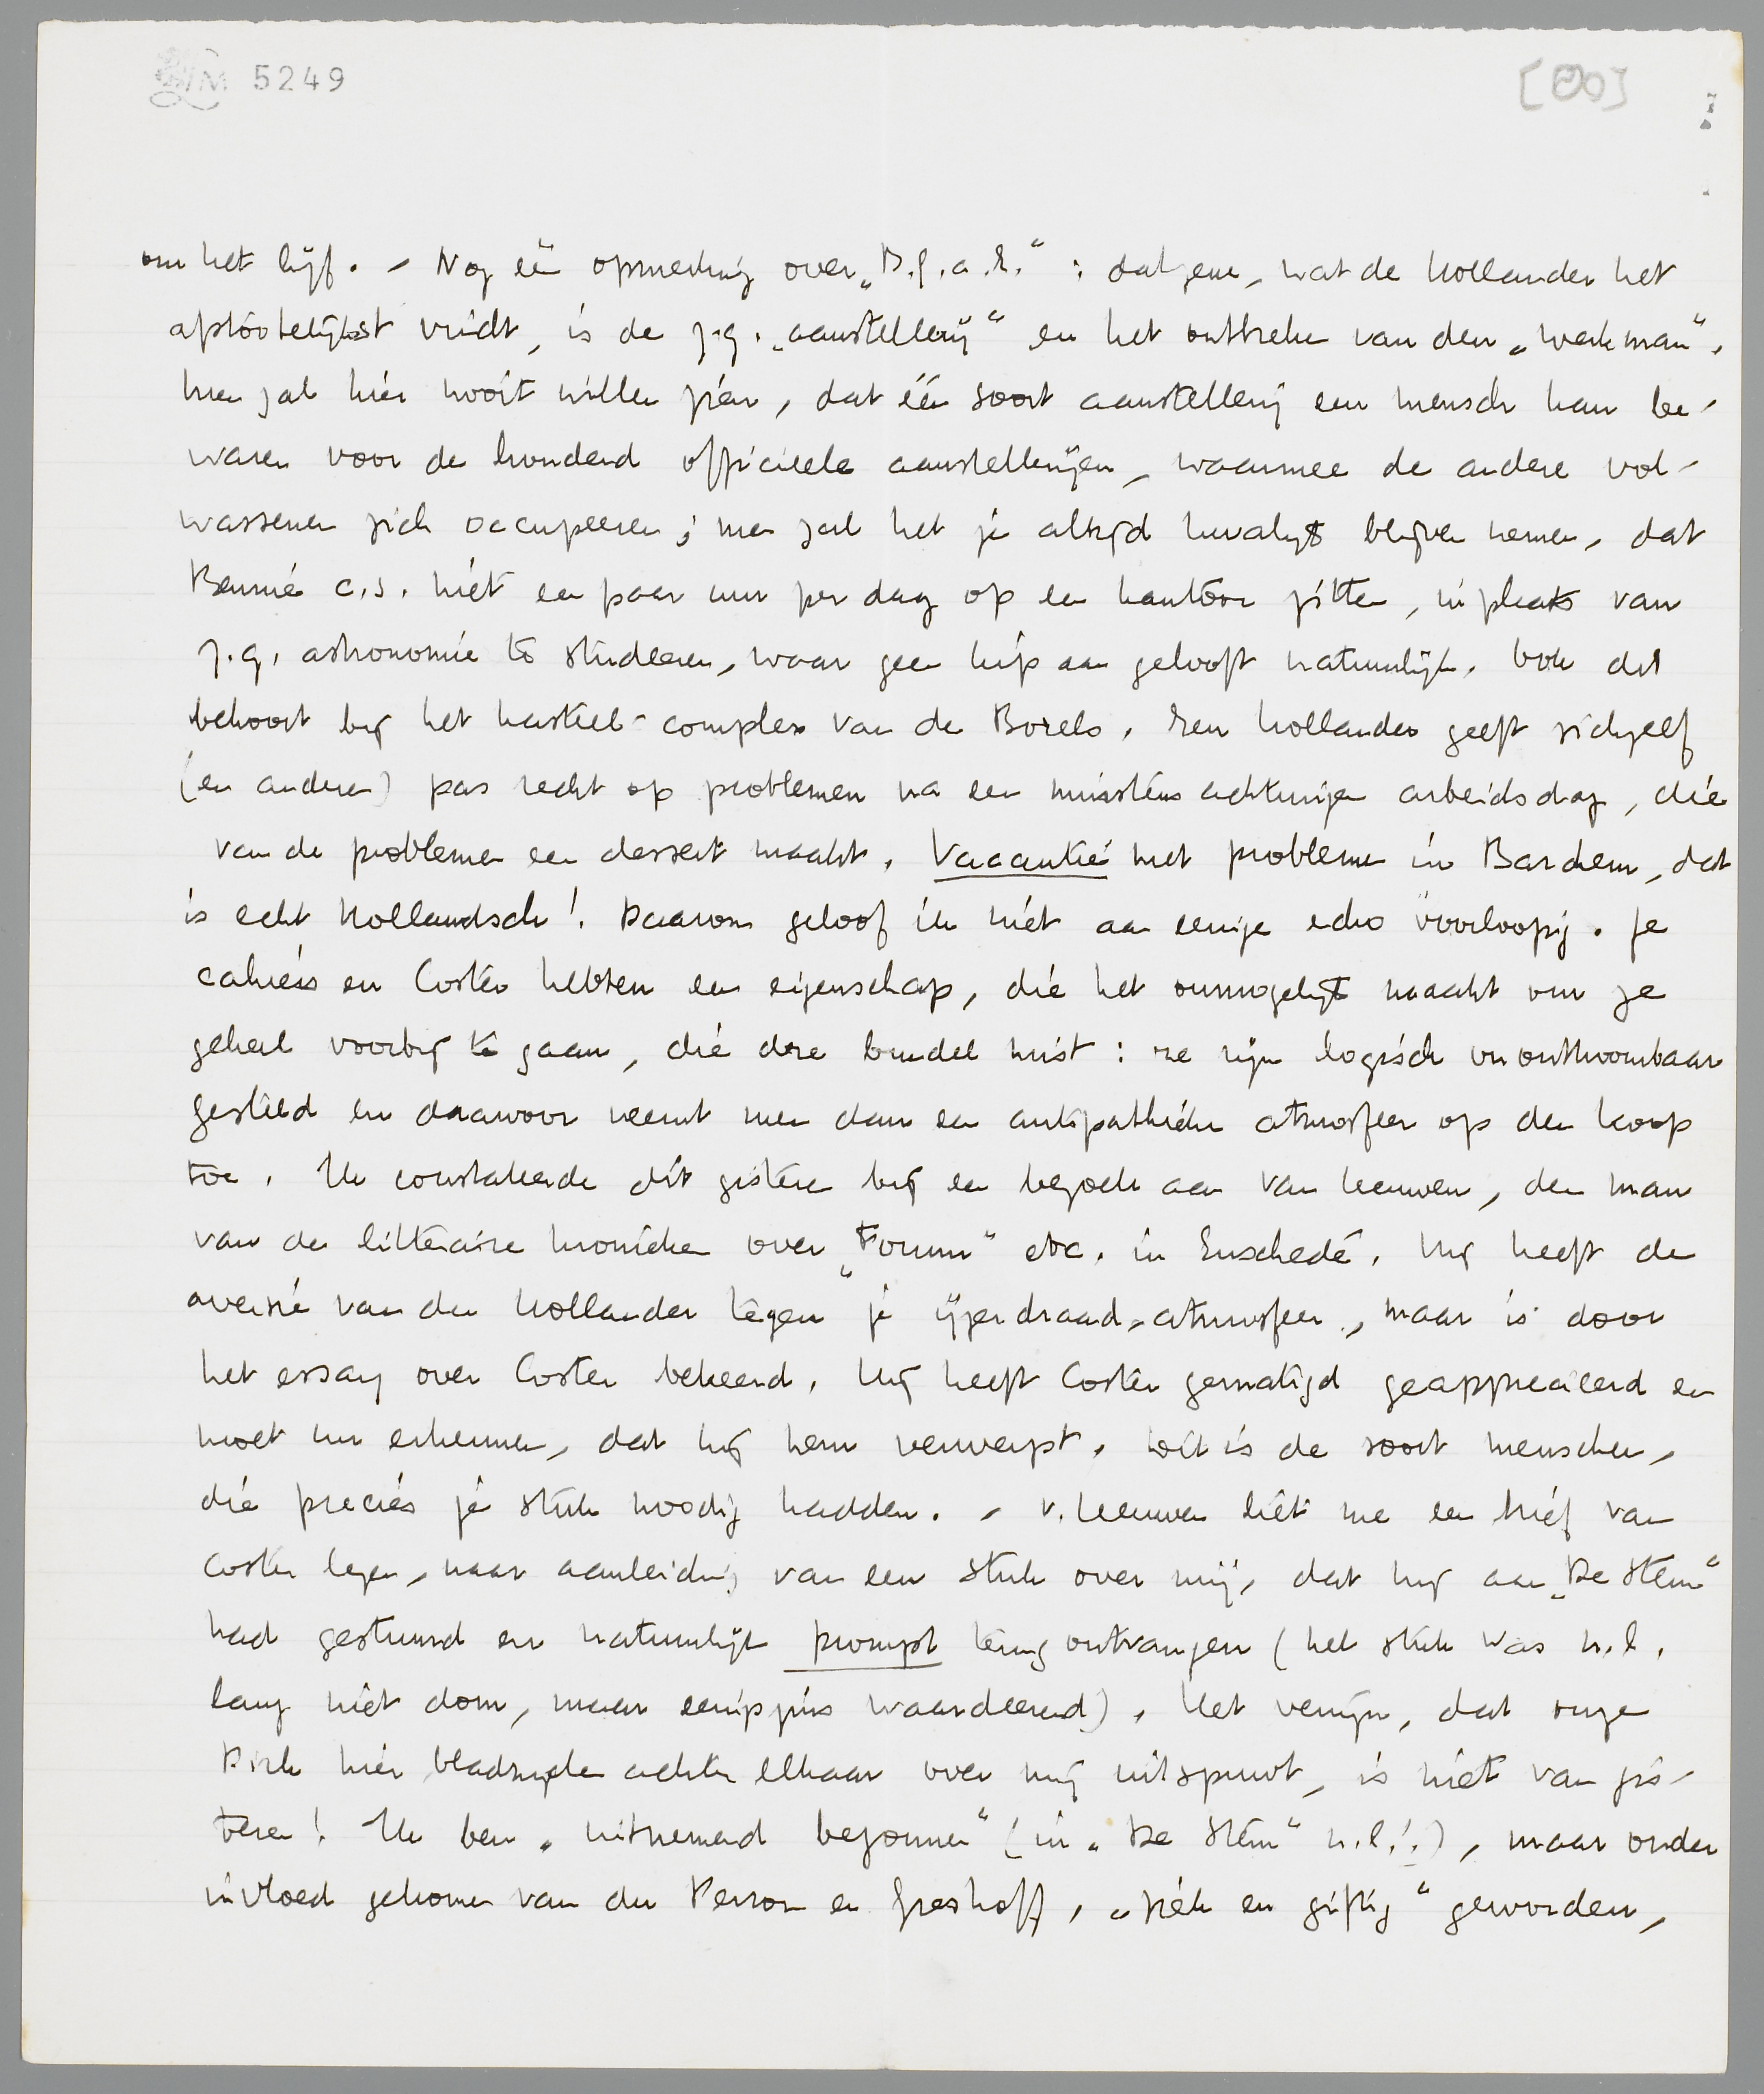 LM 5249
om het lijf. - Nog één opmerking over „B.g.a.h.“: datgene, wat de Hollander het
afstootelijkst vindt, is de z.g. „aanstellerij“ en het ontbreken van den „werkman“.
Men zal hier nooit willen zien, dat één soort aanstellerij een mensch kan be-
waren voor de honderd officieele aanstellerijen, waarmee de andere vol-
wassenen zich occupeeren; men zal het je altijd kwalijk blijven nemen, dat
Bennie c.s. niet een paar uur per dag op een kantoor zitten, in plaats van
z.g. astronomie te studeeren, waar geen kip aan gelooft natuurlijk. Ook dat
behoort bij het kasteel-complex van de Borels. Een Hollander geeft zichzelf
(en anderen) pas recht op problemen na een minstens achturigen arbeidsdag, die
van de problemen een dessert maakt. Vacantie met problemen in Barchem, dat
is echt Hollandsch! Daarom geloof ik niet aan eenige echo voorloopig. Je
cahiers en Coster hebben een eigenschap, die het onmogelijk maakt om ze
geheel voorbij te gaan, die deze bundel mist: ze zijn logisch onontkoombaar
gesteld en daarvoor neemt men dan een antipathieke atmosfeer op den koop
toe. Ik constateerde dit gisteren bij een bezoek aan van Leeuwen, den man
van de litteraire kronieken over „Forum“ etc. in Enschedé. Hij heeft de
aversie van den Hollander tegen je „ijzerdraad-atmosfeer“, maar is door
het essay over Coster bekeerd. Hij heeft Coster gematigd geapprecieerd en
moet nu erkennen, dat hij hem verwerpt. Dit is de soort menschen,
die precies je stuk noodig hadden. - v. Leeuwen liet me een brief van
Coster lezen, naar aanleiding van een stuk over mij, dat hij aan „De Stem“
had gestuurd en natuurlijk prompt terug ontvangen (het stuk was n.l.
lang niet dom, maar eenigszins waardeerend). Het venijn, dat onze
Dirk hier bladzijden achter elkaar over mij uitspuwt, is niet van gis-
teren! Ik ben „uitnemend begonnen“ (in „De Stem“ n.l.!), maar onder
invloed gekomen van du Perron en Greshoff, „ziek en giftig“ geworden,